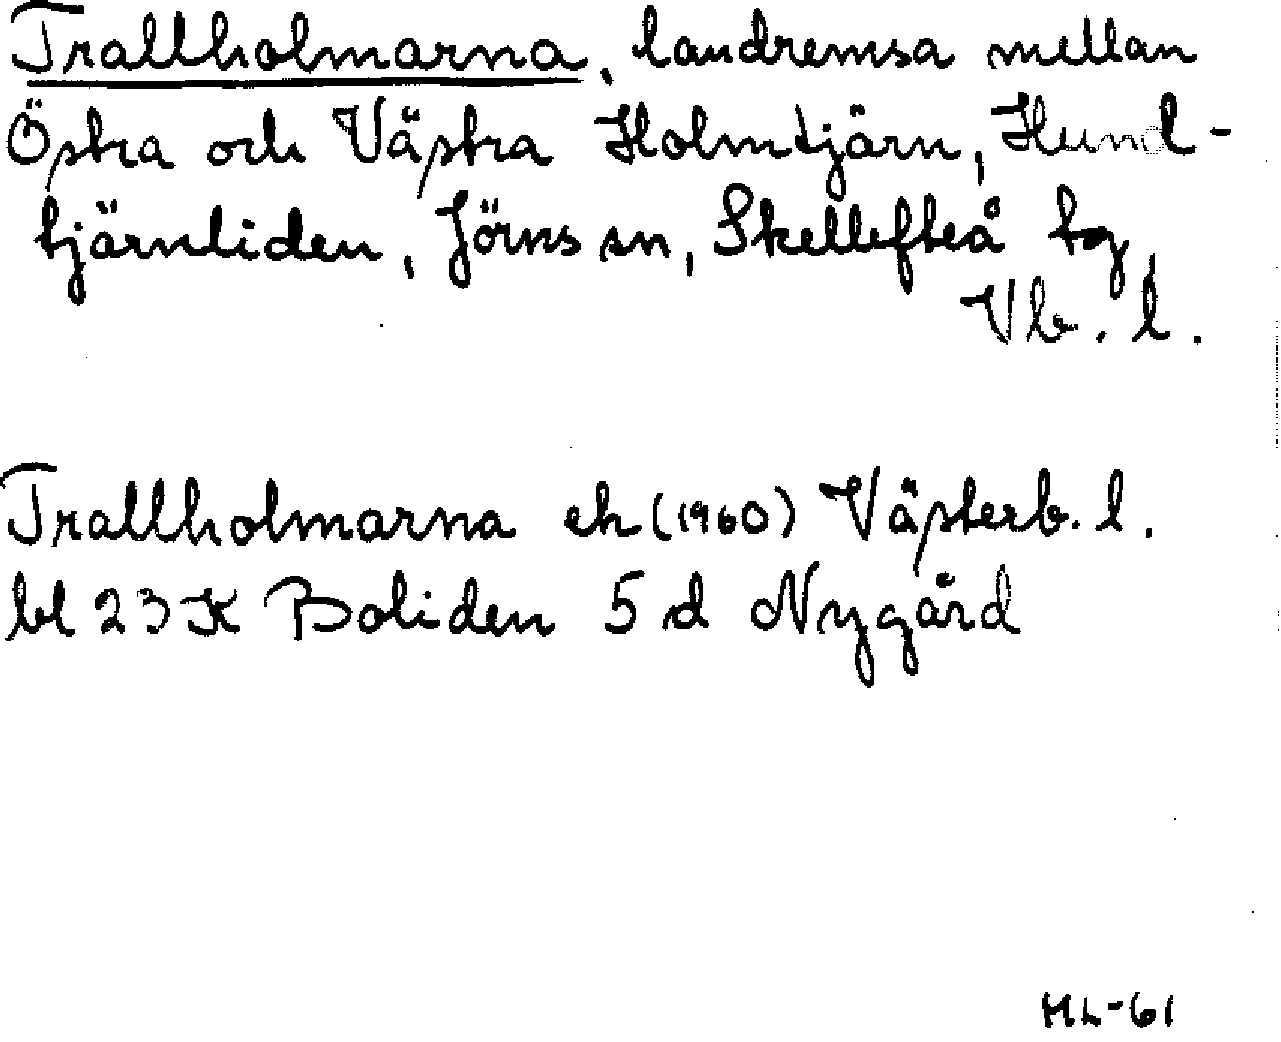 Trallholmarna, landremsa mellan
Östra och Västra Holmtjärn, Hund-
tjärnliden, Jörns sn, Skellefteå tg
Vb. l.
Trallholmarna ek (1960) Västerb. l.
bl 23 K Boliden 5 d Nygård
HL-61